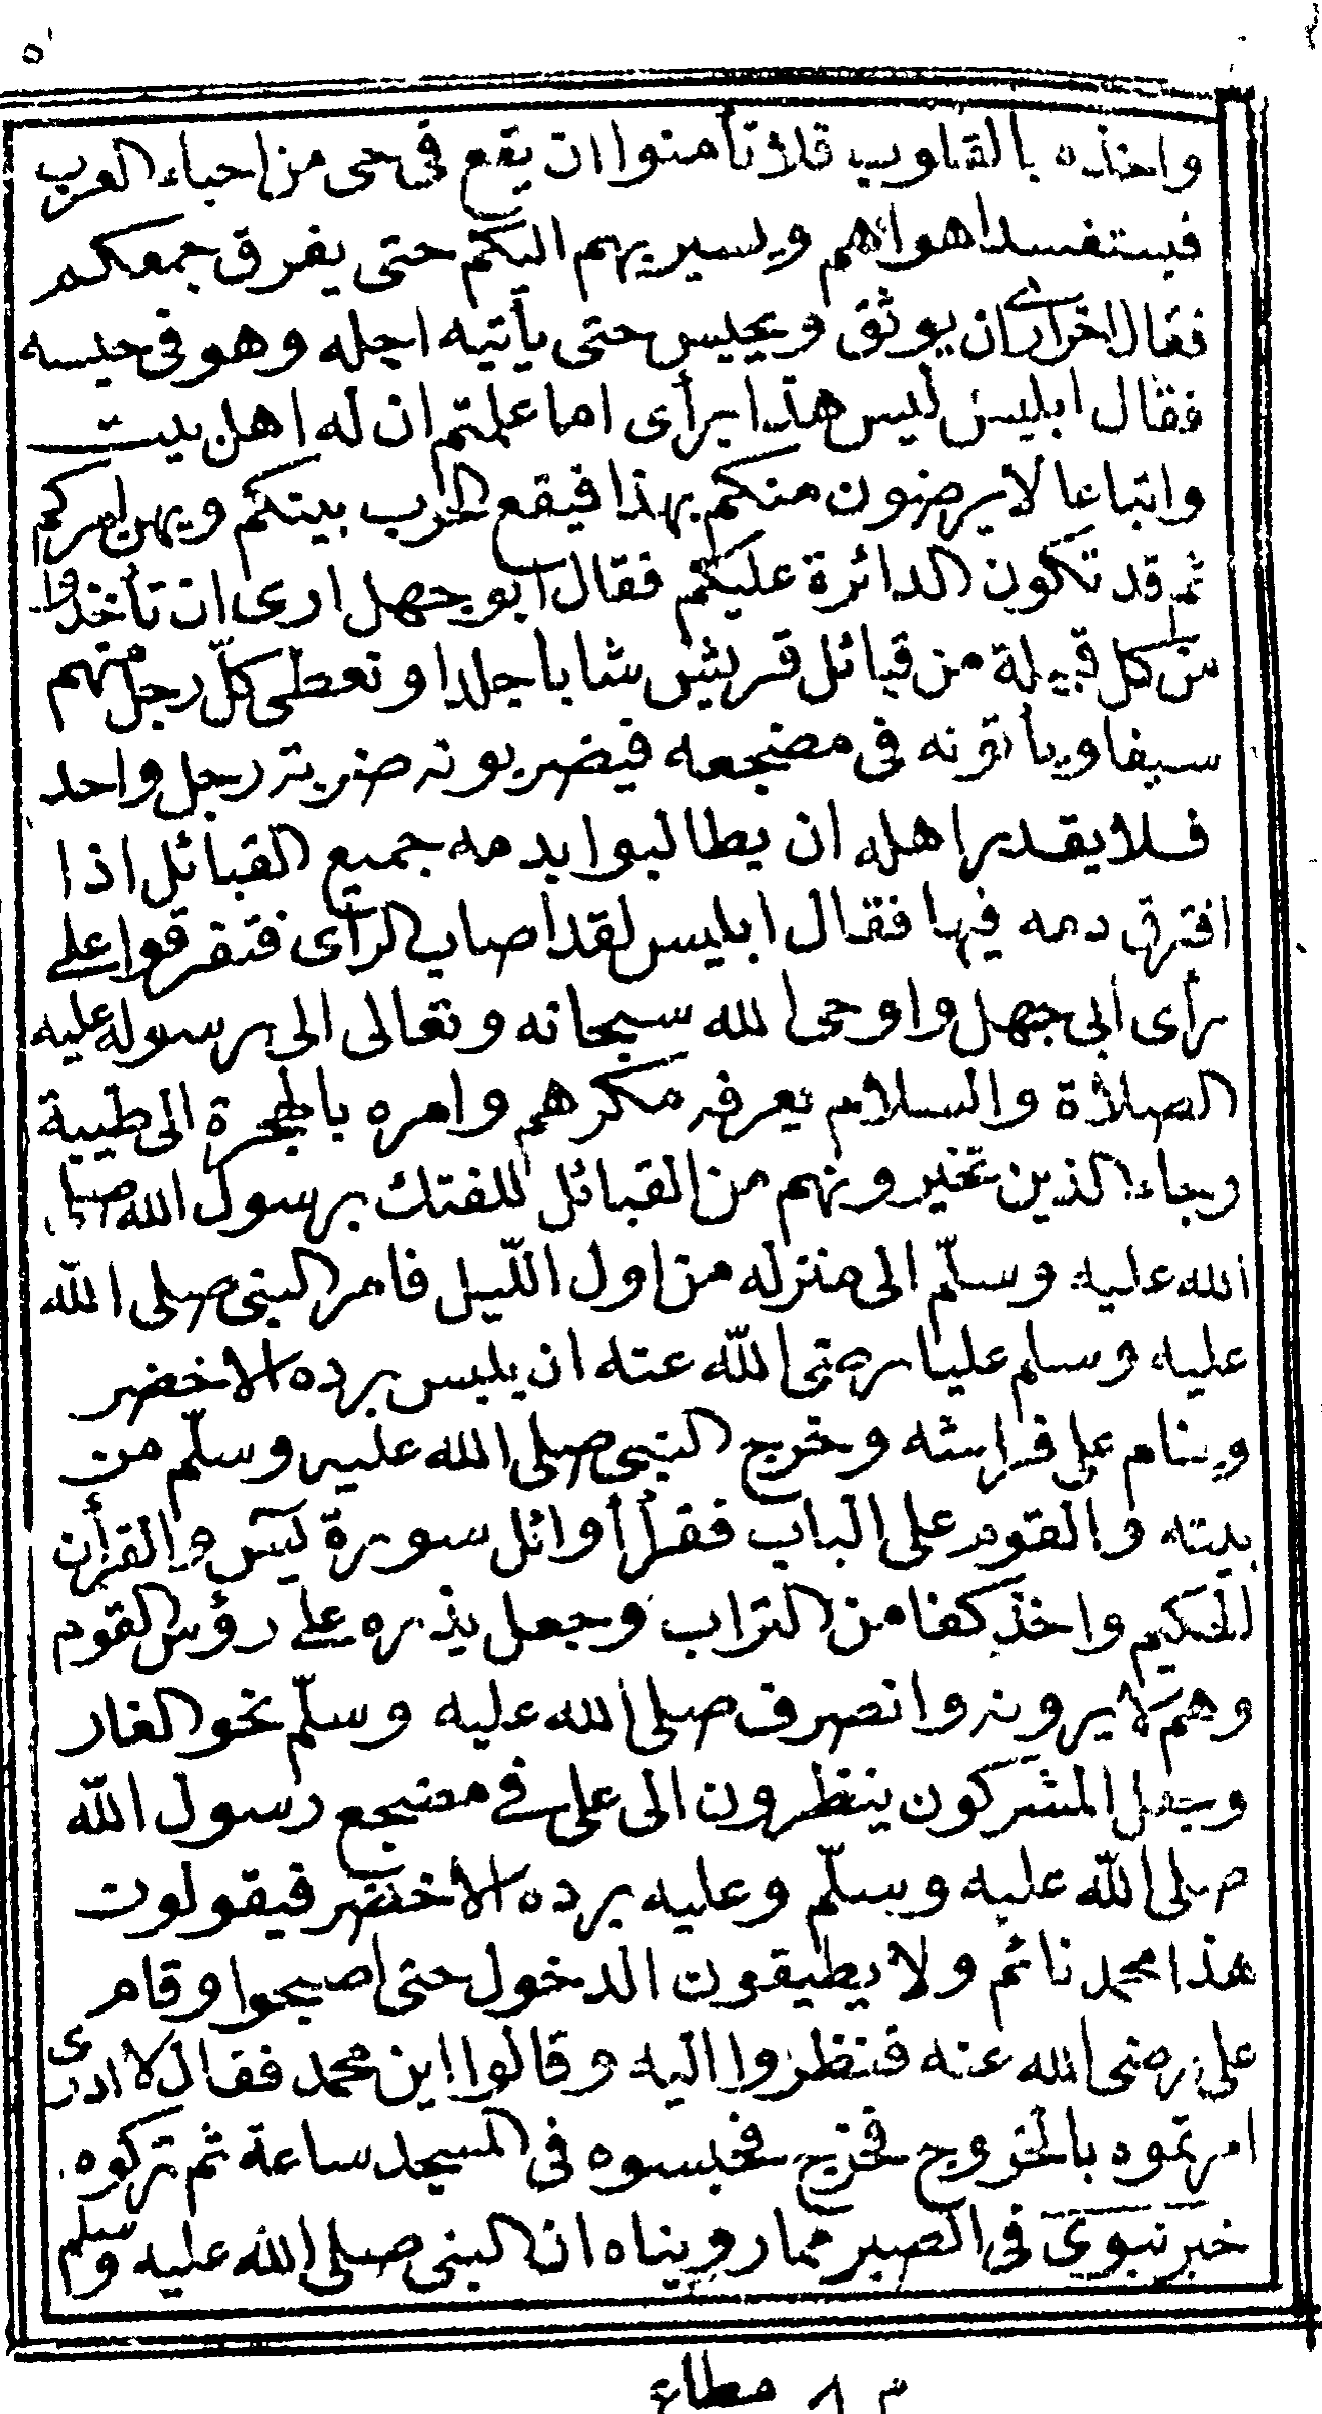 واخذه بالقلوب فلا تأمنوا ان يقع فى حى من احياء العرب
فيستفسد اهواهم ويسير بهم اليكم حتى يفرق جمعكم
فقال اخر ارى ان يوثق ويحبس حتى يأتيه اجله وهو فى حبسه
فقال ابليس ليس هذا برأى اما علمتم ان له اهل بيت
واتباعا لا يرضون منكم بهذا فيقع الحرب بينكم ويهن امركم
ثم قد تكون الدائرة عليكم فقال ابو جهل ارى ان تأخذوا
من كل قبيلة من قبائل قريش شابا جلدا وتعطى كلّ رجل منهم
سيفا ويأتونه فى مضجعه فيضربونه ضربة رجل واحد
فلا يقدر اهله ان يطالبوا بدمه جميع القبائل اذا
افترق دمه فيها فقال ابليس لقد اصاب الرأى فتفرقوا على
رأى أبى جهل واوحى الله سبحانه وتعالى الى رسوله عليه
الصلاة والسلام يعرفه مكرهم وامره بالهجرة الى طيبة
وجاء الذين تخيرونهم من القبائل للفتك برسول الله صلى
الله عليه وسلّم الى منزله من اول اللّيل فامر النبى صلى اللّه
عليه وسلم عليا رضى اللّه عنه ان يلبس برده الاخضر
وينام على فراشه وخرج النبى صلى الله عليه وسلّم من
بيته والقوم على الباب فقرأ أوائل سورة يس والقرأن
الحكيم واخذ كفا من التراب وجعل يذره على رؤس القوم
وهم لا يرونه وانصرف صلى الله عليه وسلّم نحو الغار
وجعل المشركون ينظرون الى على فى مضجع رسول اللّه
صلى اللّه عليه وسلّم وعليه برده الاخضر فيقولون
هذا محمد نائم ولا يطيقون الدخول حتى اصبحوا وقام
على رضى الله عنه فنظروا اليه وقالوا اين محمد فقال لا ادرى
امرتموه بالخروج فخرج فحبسوه فى المسجد ساعة ثم تركوه
خبر نبوى فى الصبر مما رويناه ان النبى صلى الله عليه وسلم
م ٨ مطاع